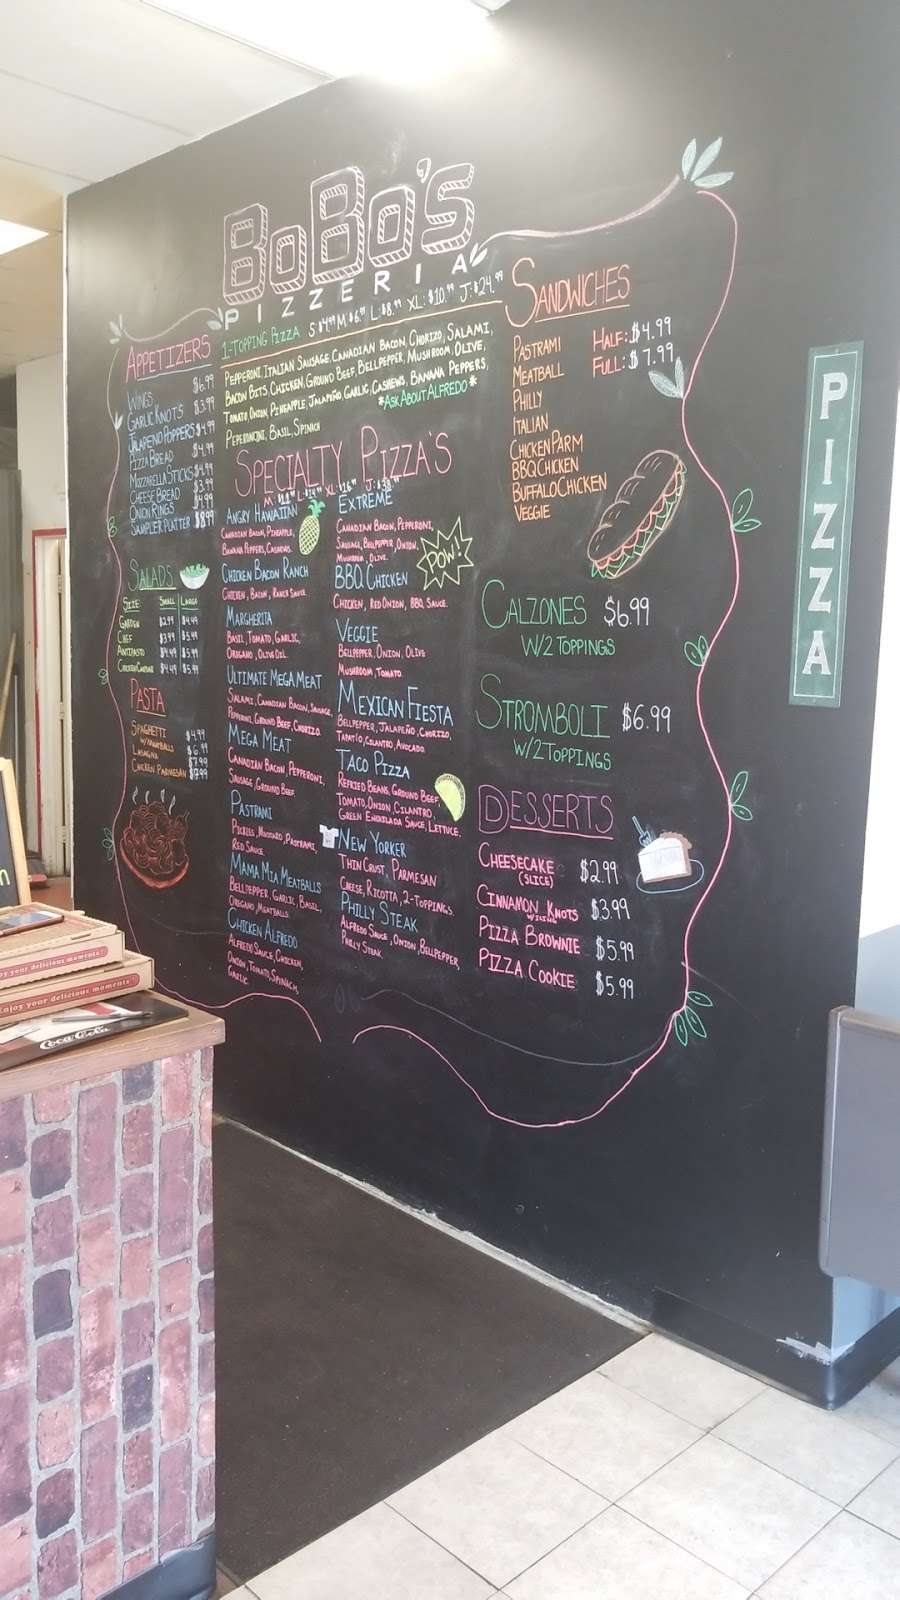 BoBo's
PIZZERIA
1-Topping Pizza S:$4.99 M:$6.99 L:$8.99 XL:$10.99 J:$24.99
Pepperoni, Italian Sausage, Canadian Bacon, Chorizo, Salami,
Bacon Bits, Chicken, Ground Beef, Bellpepper, Mushroom, Olive,
Tomato, Onion, Pineapple, Jalapeño, Garlic, Cashews, Banana Peppers,
Peperoncini, Basil, Spinach
*Ask About Alfredo*
Appetizers
Wings $6.99
Garlic Knots $3.99
Jalapeno Poppers $4.99
Pizza Bread $4.99
Mozzarella Sticks $4.99
Cheese Bread $3.99
Onion Rings $4.99
Sampler Platter $8.99
Salads
Size Small Large
Garden $2.99 $4.99
Chef $3.99 $5.99
Antipasto $4.49 $5.99
Chicken Caesar $4.49 $5.99
Pasta
Spaghetti $4.99
w/Meatballs $6.99
Lasagna $7.99
Chicken Parmesan $7.99
Specialty Pizza's
Angry Hawaiian
Canadian Bacon, Pineapple,
Banana Peppers, Cashews.
Chicken Bacon Ranch
Chicken, Bacon, Ranch Sauce
Margherita
Basil, Tomato, Garlic,
Oregano, Olive Oil
Ultimate Mega Meat
Salami, Canadian Bacon, Sausage,
Pepperoni, Ground Beef, Chorizo.
Mega Meat
Canadian Bacon, Pepperoni,
Sausage, Ground Beef
Pastrami
Pickles, Mustard, Pastrami,
Red Sauce
Mama Mia Meatballs
Bellpepper, Garlic, Basil,
Oregano, Meatballs
Chicken Alfredo
Alfredo Sauce, Chicken,
Onion, Tomato, Spinach,
Garlic
Extreme
Canadian Bacon, Pepperoni,
Sausage, Bellpepper, Onion,
Mushroom, Olive.
POW!
BBQ Chicken
Chicken, Red Onion, BBQ Sauce.
Veggie
Bellpepper, Onion, Olive
Mushroom, Tomato
Mexican Fiesta
Bellpepper, Jalapeño, Chorizo,
Tapatío, Cilantro, Avocado.
Taco Pizza
Refried Beans, Ground Beef,
Tomato, Onion, Cilantro,
Green Enchilada Sauce, Lettuce.
New Yorker
Thin Crust, Parmesan
Cheese, Ricotta, 2-Toppings
Philly Steak
Alfredo Sauce, Onion, Bellpepper,
Philly Steak
Sandwiches
Pastrami Half: $4.99
Meatball Full: $7.99
Philly
Italian
Chicken Parm
BBQ Chicken
Buffalo Chicken
Veggie
Calzones $6.99
w/2 Toppings
Stromboli $6.99
w/2 Toppings
Desserts
Cheesecake $2.99
(Slice)
Cinnamon Knots $3.99
Pizza Brownie $5.99
Pizza Cookie $5.99
PIZZA
your delicious moments!
Enjoy your delicious moments!
Coca-Cola